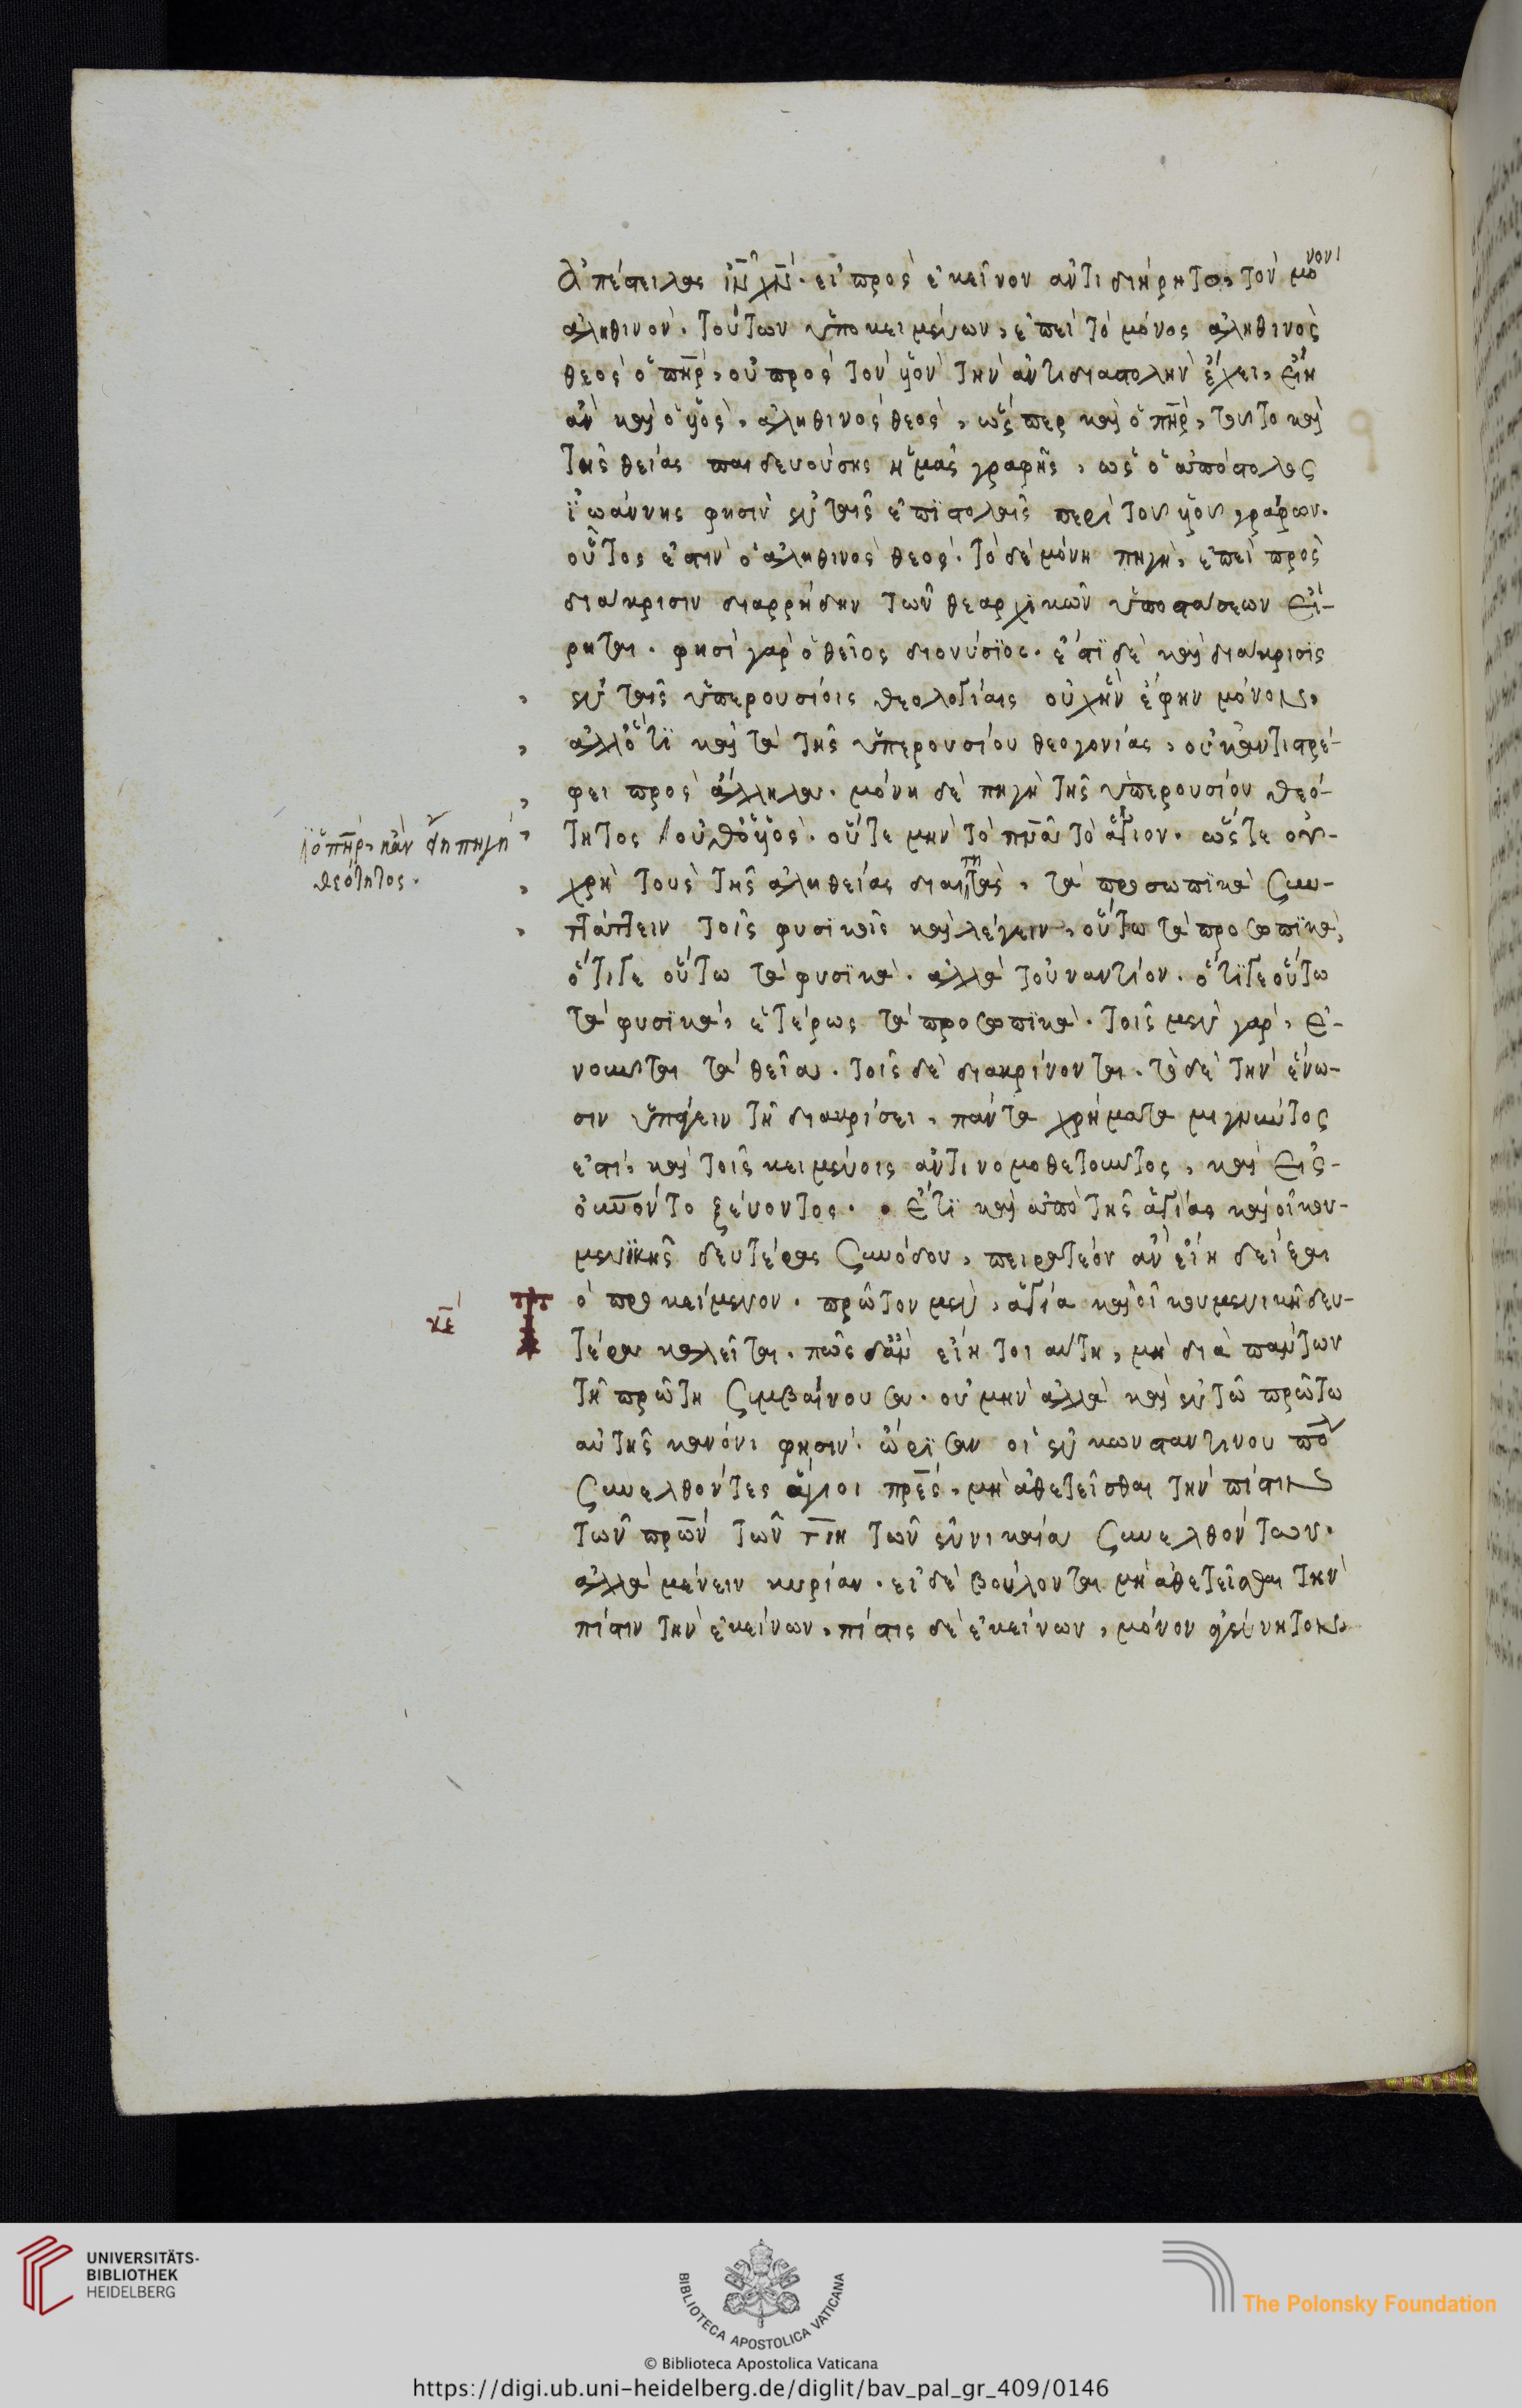 ἀπέστειλας ἰν̅ χν̅. εἰ πρὸς ἐκεῖνον ἀντιδιήρητο, τὸν μόνον
ἀληθινόν. τούτων ὑποκειμένων, ἐπεὶ τὸ μόνος ἀληθινὸς
θεὸς ὁ πη̅ρ, οὐ πρὸς τὸν υἱὸν τὴν ἀντιδιαστολὴν ἔχει, εἴη
ἂν καὶ ὁ υἱὸς, ἀληθινὸς θεὸς, ὥσπερ καὶ ὁ πη̅ρ, τοῦτο καὶ
τῆς θείας παιδευούσης ἡμᾶς γραφῆς, ὡς ὁ ἀπόστολος
ϊωάννης φησὶν ἐν ταῖς ἐπϊστολαῖς περὶ τοῦ υἱοῦ γράφων.
οὗτος ἐστὶν ὁ ἀληθινὸς θεός. τὸ δὲ μόνη πηγὴ, ἐπεὶ πρὸς
διάκρισιν διαρρήδην τῶν θεαρχικῶν ὑποστάσεων εἴ-
ρηται. φησὶ γὰρ ὁ θεῖος διονύσϊος. ἔστϊ δὲ καὶ διάκρισϊς
ἐν ταῖς ὑπερουσίοις θεολογίαις οὐχ ἣν ἔφην μόνον,
ἀλλ' ὅτϊ καὶ τὰ τῆς ὑπερουσίου θεογονίας, οὐκ ἀντιστρέ-
φει πρὸς ἄλληλα. μόνη δὲ πηγὴ τῆς ὑπερουσίου θεό-
τητος / οὐδ' ὁ υἱὸς. οὔτε μὴν τὸ πν̅α τὸ ἅγιον. ὥστε οὐ-
/ ὁ πη̅ρ, κἂν πηγὴ
θεότητος.
χρὴ τοὺς τῆς ἀληθείας διαιτητὰς, τὰ προσωπϊκὰ συν-
τάττειν τοῖς φυσϊκοῖς καὶ λέγειν, οὕτω τὰ προσωπϊκὰ,
ὅτι γε οὕτω τὰ φυσϊκά. ἀλλὰ τοὐναντίον. ὅτϊ γε οὕτω
τὰ φυσϊκὰ, ἑτέρως τὰ προσωπϊκὰ. τοῖς μὲν γὰρ, ἑ-
νοῦνται τὰ θεῖα. τοῖς δὲ διακρίνονται. τὸ δὲ τὴν ἕνω-
σιν ὑπάγειν τῇ διακρίσει, πάντα χρήματα μιγνῦντος
ἐστὶ, καὶ τοῖς κειμένοις ἀντινομοθετοῦντος, καὶ εἰσ-
έτϊ καὶ ἀπὸ τῆς ἁγίας καὶ οἰκου-
μενϊκῆς δευτέρας συνόδου, πειρατέον ἂν εἴη δεῖξαι
κε̅
τὸ προκείμενον. πρῶτον μὲν, ἁγία καὶ οἰκουμενικὴ δευ-
τέρα καλεῖται. πῶς δ' ἂν εἴη τοιαύτη, μὴ διὰ πάντων
τῇ πρώτη συμβαίνουσα. οὐ μὴν ἀλλὰ καὶ ἐν τῷ πρώτω
αὐτῆς κανόνι φησὶν. ὥρϊσαν οἱ ἐν κωνσταντινου πό
συνελθόντες ἅγιοι πρε̅ς, μὴ ἀθετεῖσθαι τὴν πίστιν
τῶν πρω̅ν τῶν τι̅η τῶν ἐν νικαία συνελθόντων.
ἀλλὰ μένειν κυρίαν. εἰ δὲ βούλονται μὴ ἀθετεῖσθαι τὴν
πίστιν τὴν ἐκείνων, πίστις δὲ ἐκείνων, μόνον ἀγέννητον,
UNIVERSITÄTS-
BIBLIOTHEK
HEIDELBERG
BIBLIOTECA APOSTOLICA VATICANA
The Polonsky Foundation
© Biblioteca Apostolica Vaticana
https://digi.ub.uni-heidelberg.de/diglit/bav_pal_gr_409/0146